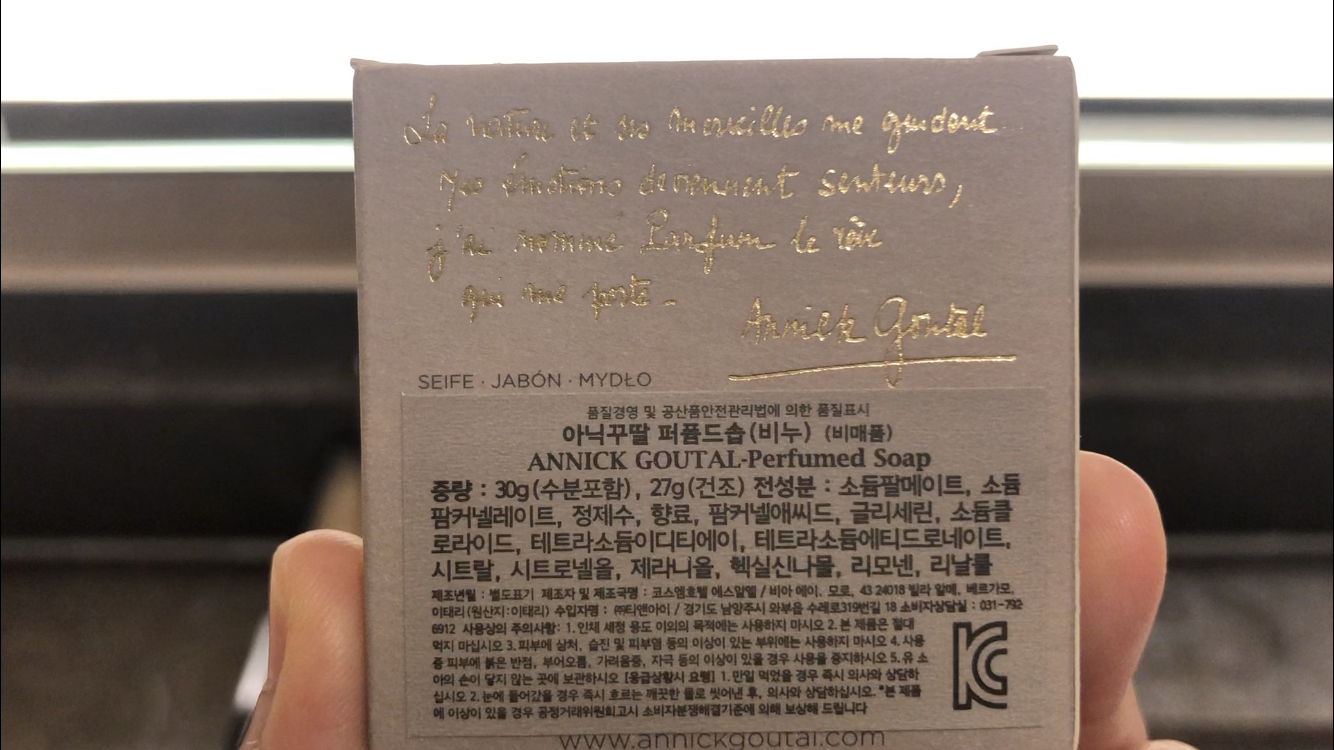 La nature et ses merveilles me guident
Mes émotions deviennent senteurs,
j'ai nommé Parfum le rêve
qui me porte.
Annick Goutal
SEIFE · JABÓN · MYDŁO
품질경영 및 공산품안전관리법에 의한 품질표시
아닉꾸딸 퍼퓸드솝(비누) (비매품)
ANNICK GOUTAL-Perfumed Soap
중량 : 30g(수분포함), 27g(건조) 전성분 : 소듐팔메이트, 소듐
팜커넬레이트, 정제수, 향료, 팜커넬애씨드, 글리세린, 소듐클
로라이드, 테트라소듐이디티에이, 테트라소듐에티드로네이트,
시트랄, 시트로넬올, 제라니올, 헥실신나몰, 리모넨, 리날룰
제조년월 : 별도표기 제조자 및 제조국명 : 코스엠호텔 에스알엘 / 비아 에이. 모로, 43 24018 빌라 알메, 베르가모,
이태리(원산지:이태리) 수입자명 : ㈜티앤아이 / 경기도 남양주시 와부읍 수레로319번길 18 소비자상담실 : 031-792-
6912 사용상의 주의사항: 1. 인체 세정 용도 이외의 목적에는 사용하지 마시오 2. 본 제품은 절대
먹지 마십시오 3. 피부에 상처, 습진 및 피부염 등의 이상이 있는 부위에는 사용하지 마시오 4. 사용
중 피부에 붉은 반점, 부어오름, 가려움증, 자극 등의 이상이 있을 경우 사용을 중지하시오 5. 유 소
아의 손이 닿지 않는 곳에 보관하시오 [응급상황시 요령] 1. 만일 먹었을 경우 즉시 의사와 상담하
십시오 2. 눈에 들어갔을 경우 즉시 흐르는 깨끗한 물로 씻어낸 후, 의사와 상담하십시오. *본 제품
에 이상이 있을 경우 공정거래위원회고시 소비자분쟁해결기준에 의해 보상해 드립니다
www.annickgoutal.com